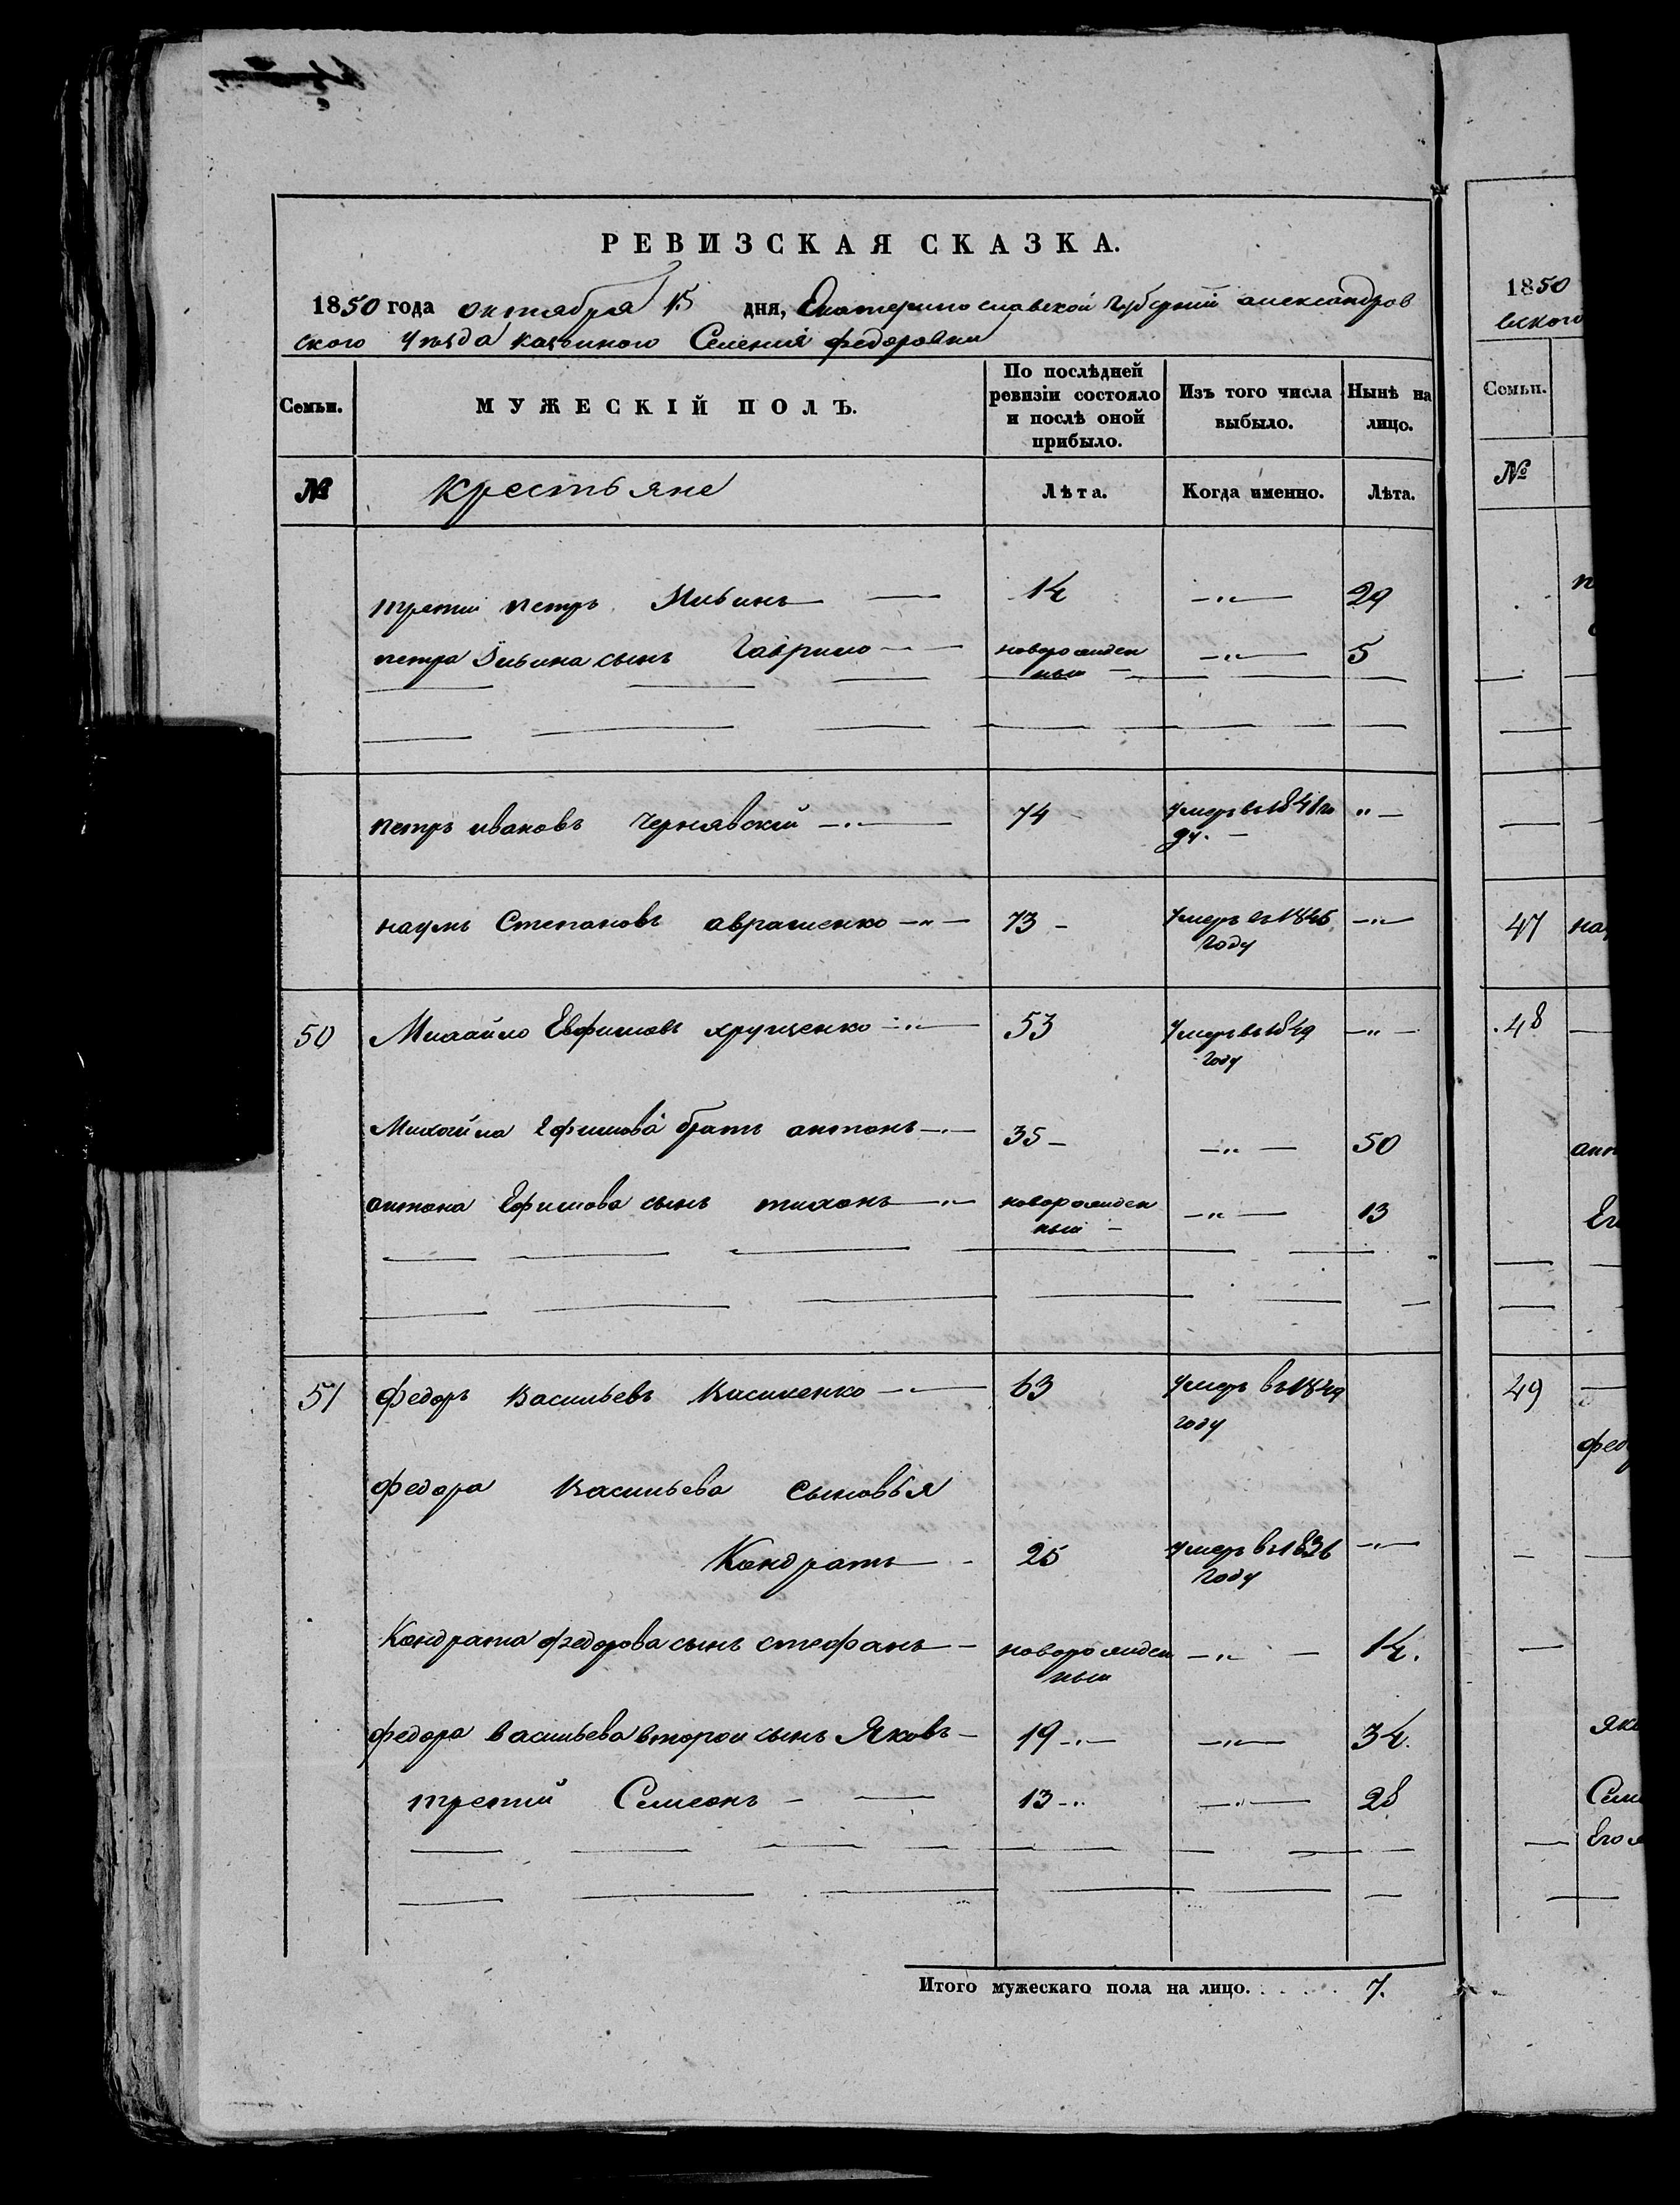 РЕВИЗСКАЯ СКАЗКА.
1850 года октября 15 дня, Екатеринославской губерніи александров
ского уезда казенного Селенія федоровки
Семьи. МУЖЕСКІЙ ПОЛЪ. По послѣдней ревизіи состояло и послѣ оной прибыло. Изъ того числа выбыло. Нынѣ на лицо.
№ крестьяне Лѣта. Когда именно. Лѣта.
третий петръ 14 29
петра сынъ Гаврило новорожден 5
ный
петръ ивановъ Чернявский 74 умеръ въ 1841 го
ду.
наумъ Степановъ аврашенко 73 умеръ въ 1845
году
50 Михайло Евфимовъ хрущенко 53 умеръ въ 1849
году
Михайла Ефимова братъ антонъ 35 50
антона Ефимова сынъ тихонъ новорожден 13
ный
51 федоръ Васильевъ Василенко 63 умеръ въ 1849
году
федора Васильева сыновья
Кондратъ 25 умеръ въ 1836
году
Кондрата федорова сынъ стефанъ новорожден 14.
ный
федора васильева второй сынъ Яковъ 19 34.
третий Семеонъ 13 28
Итого мужескаго пола на лицо. 7.
1850
вского
Семьи.
№
47
48
49